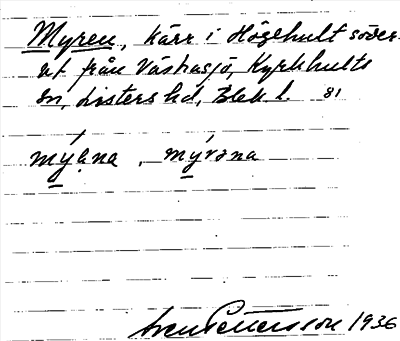 Myren, kärr i Högehult söder-
ut från Västrasjö, Kyrkhults
sn, Listers hd, Blek. l. 81
mýṇna, mýrəna
Sven Pettersson 1936